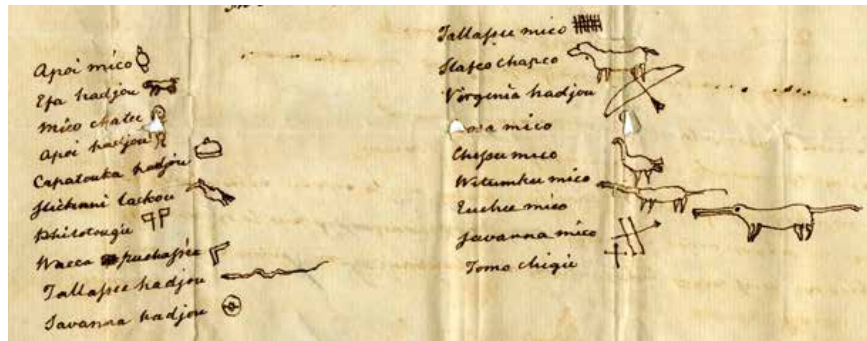 Apoi mico
Efa hadjou
Mico chatee
Apoi hadjou
Capatouka hadjou
lackou
Philotougie
Wacca puchasie
Tallasee hadjou
Savanna hadjou
Tallassee mico
chapco
Virginia hadjou
mico
mico
Witumkee mico
Euchee mico
Savanna mico
Tomo chigie